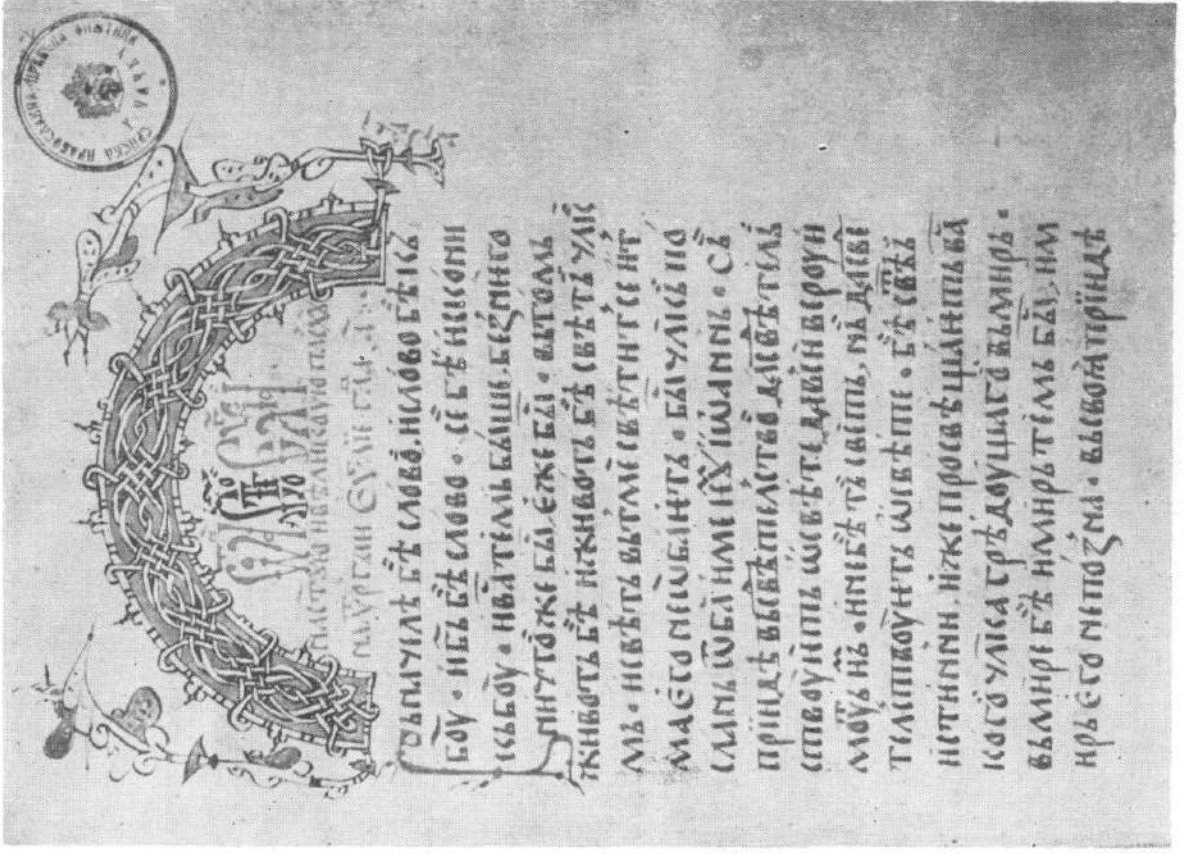 въ с҃тꙋю не҃лю и великꙋю пасхꙋ
на лѵтꙋргїи еѵ҃лїе гла҃ва а҃
Въ начелѣ бѣ слово, и слово бѣ къ
бо҃у · и б҃ь бѣ слово · се́ бѣ искони
къ бо҃у · и вса́ тѣмь бы́ше. без него
ничтоже бы́, еже бы́ · въ томь
животь бѣ и животь бѣ свѣть чл҃кѡ
мь · и свѣть вь тмѣ свѣтит се и т
ма его не ѡбѥть · бы́ чл҃кь по
слань ѿ б҃а име ѥмꙋ їѡаннь · съ
прїиде вь свѣдѣтелство да свѣдѣтель
ствоуѥть ѡ свѣтѣ да вьси вѣроу и
моуть имь · не бѣ ть свѣть, нь да свѣдѣ
телствоуѥть ѡ свѣтѣ · бѣ свѣть
истинни, иже просвѣщаѥть вса
кого чл҃ка гредоущаго вь мирь ·
вь мирѣ бѣ и мирь тѣмь бы́, и м
ирь его не позна · вь своꙗ прїиде